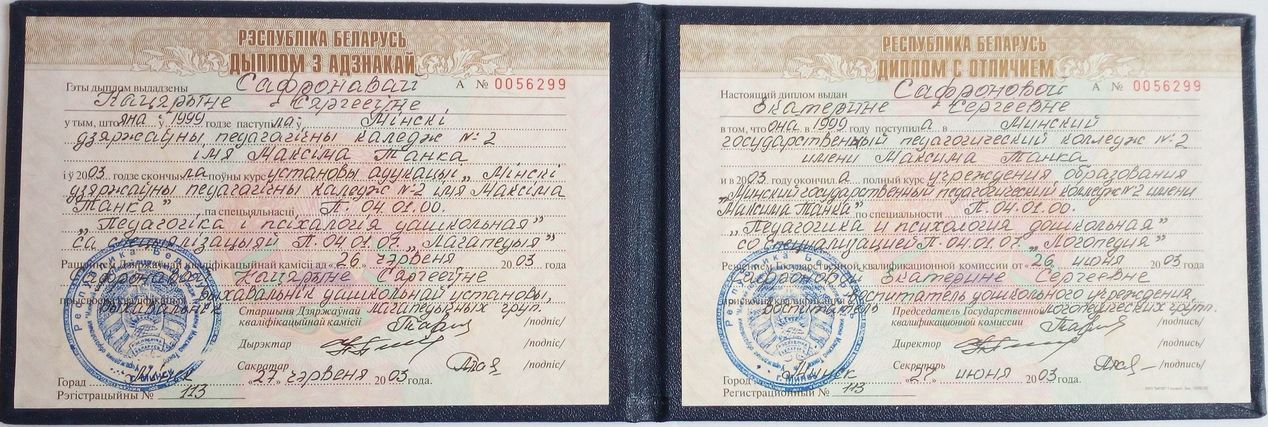 РЭСПУБЛІКА БЕЛАРУСЬ
ДЫПЛОМ З АДЗНАКАЙ
Гэты дыплом выдадзены Сафронавай А № 0056299
Кацярыне Сяргееўне
у тым, што яна ў 1999 годзе паступіла ў Мінскі
дзяржаўны педагагічны каледж № 2
імя Максіма Танка
і ў 2003 годзе скончыла поўны курс установы адукацыі „Мінскі
дзяржаўны педагагічны каледж № 2 імя Максіма
Танка" па спецыяльнасці П. 04.01.00.
„Педагогіка і псіхалогія дашкольная"
са спецыялізацыяй П. 04.01.07 „Лагапедыя"
Рашэннем Дзяржаўнай кваліфікацыйнай камісіі ад «26» чэрвеня 2003 года
Сафронавай Кацярыне Сяргееўне
прысвоена кваліфікацыя выхавальнік дашкольнай установы,
выхавальнік лагапедычных груп.
Старшыня Дзяржаўнай
кваліфікацыйнай камісіі /подпіс/
Дырэктар /подпіс/
Сакратар /подпіс/
Горад Мінск «27» чэрвеня 2003 года.
Рэгістрацыйны № 113
РЕСПУБЛИКА БЕЛАРУСЬ
ДИПЛОМ С ОТЛИЧИЕМ
Настоящий диплом выдан Сафроновой А № 0056299
Екатерине Сергеевне
в том, что она в 1999 году поступила в Минский
государственный педагогический колледж № 2
имени Максима Танка
и в 2003 году окончила полный курс учреждения образования
„Минский государственный педагогический колледж №2 имени
Максима Танка" по специальности П. 04.01.00.
„Педагогика и психология дошкольная"
со специализацией П. 04.01.07 „Логопедия"
Решением Государственной квалификационной комиссии от «26» июня 2003 года
Сафроновой Екатерине Сергеевне
присвоена квалификация воспитатель дошкольного учреждения,
воспитатель логопедических групп.
Председатель Государственной
квалификационной комиссии /подпись/
Директор /подпись/
Секретарь /подпись/
Город Минск «27» июня 2003 года.
Регистрационный № 113